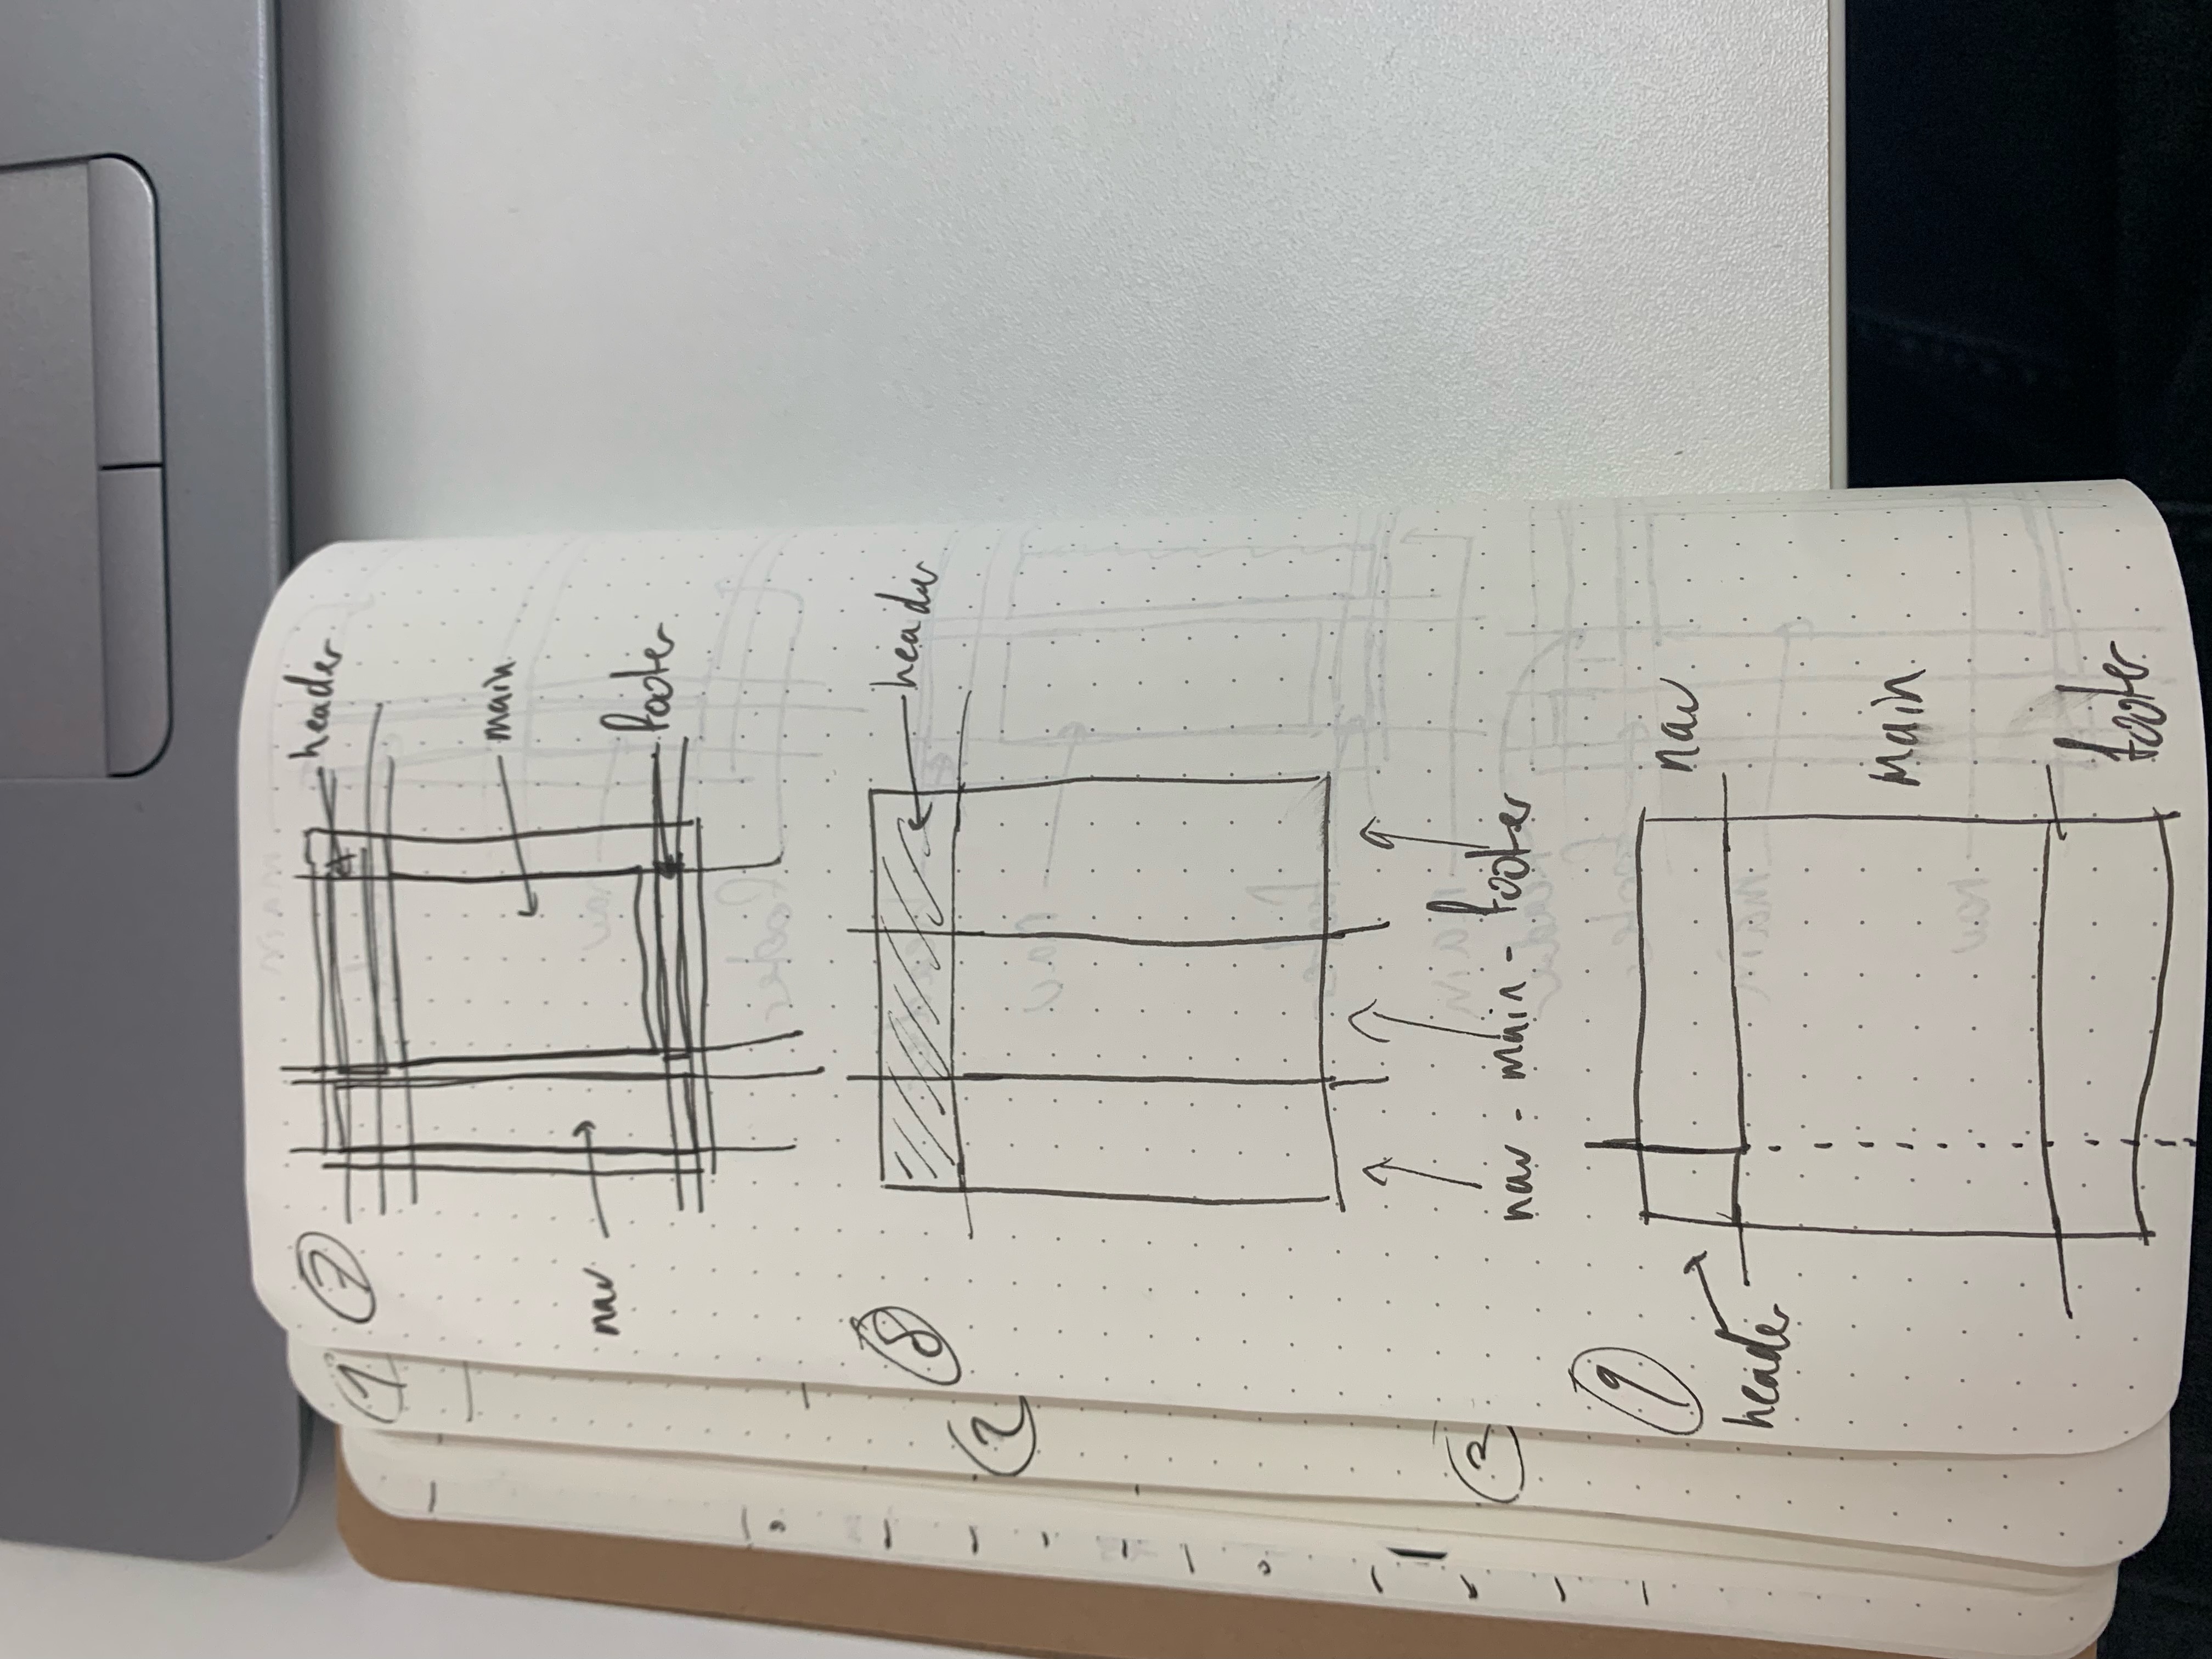 7
header
main
nav
footer
8
header
nav - main - footer
9
nav
header
main
footer
1
2
3